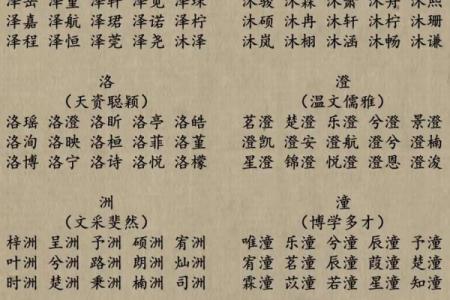 泽轩
泽嘉 泽航 泽珺 泽诺 泽柠
泽程 泽恒 泽莞 泽尧 沐泽
沐霖 沐舟
沐硕 沐冉 沐轩 沐柠 沐珊
沐岚 沐栩 沐涵 沐畅 沐谦
洛
（天资聪颖）
洛瑶 洛澄 洛昕 洛亭 洛皓
洛洵 洛映 洛桓 洛菲 洛堇
洛博 洛宁 洛诗 洛悦 洛檬
澄
（温文儒雅）
茗澄 楚澄 乐澄 兮澄 景澄
澄凯 澄安 澄航 澄兮 澄楠
星澄 锦澄 悦澄 澄恩 澄浚
洲
（文采斐然）
梓洲 呈洲 予洲 硕洲 宥洲
叶洲 兮洲 路洲 朗洲 灿洲
时洲 楚洲 秉洲 楠洲 司洲
潼
（博学多才）
唯潼 乐潼 兮潼 辰潼 予潼
宥潼 若潼 辰潼 葭潼 楚潼
霖潼 苡潼 若潼 星潼 知潼